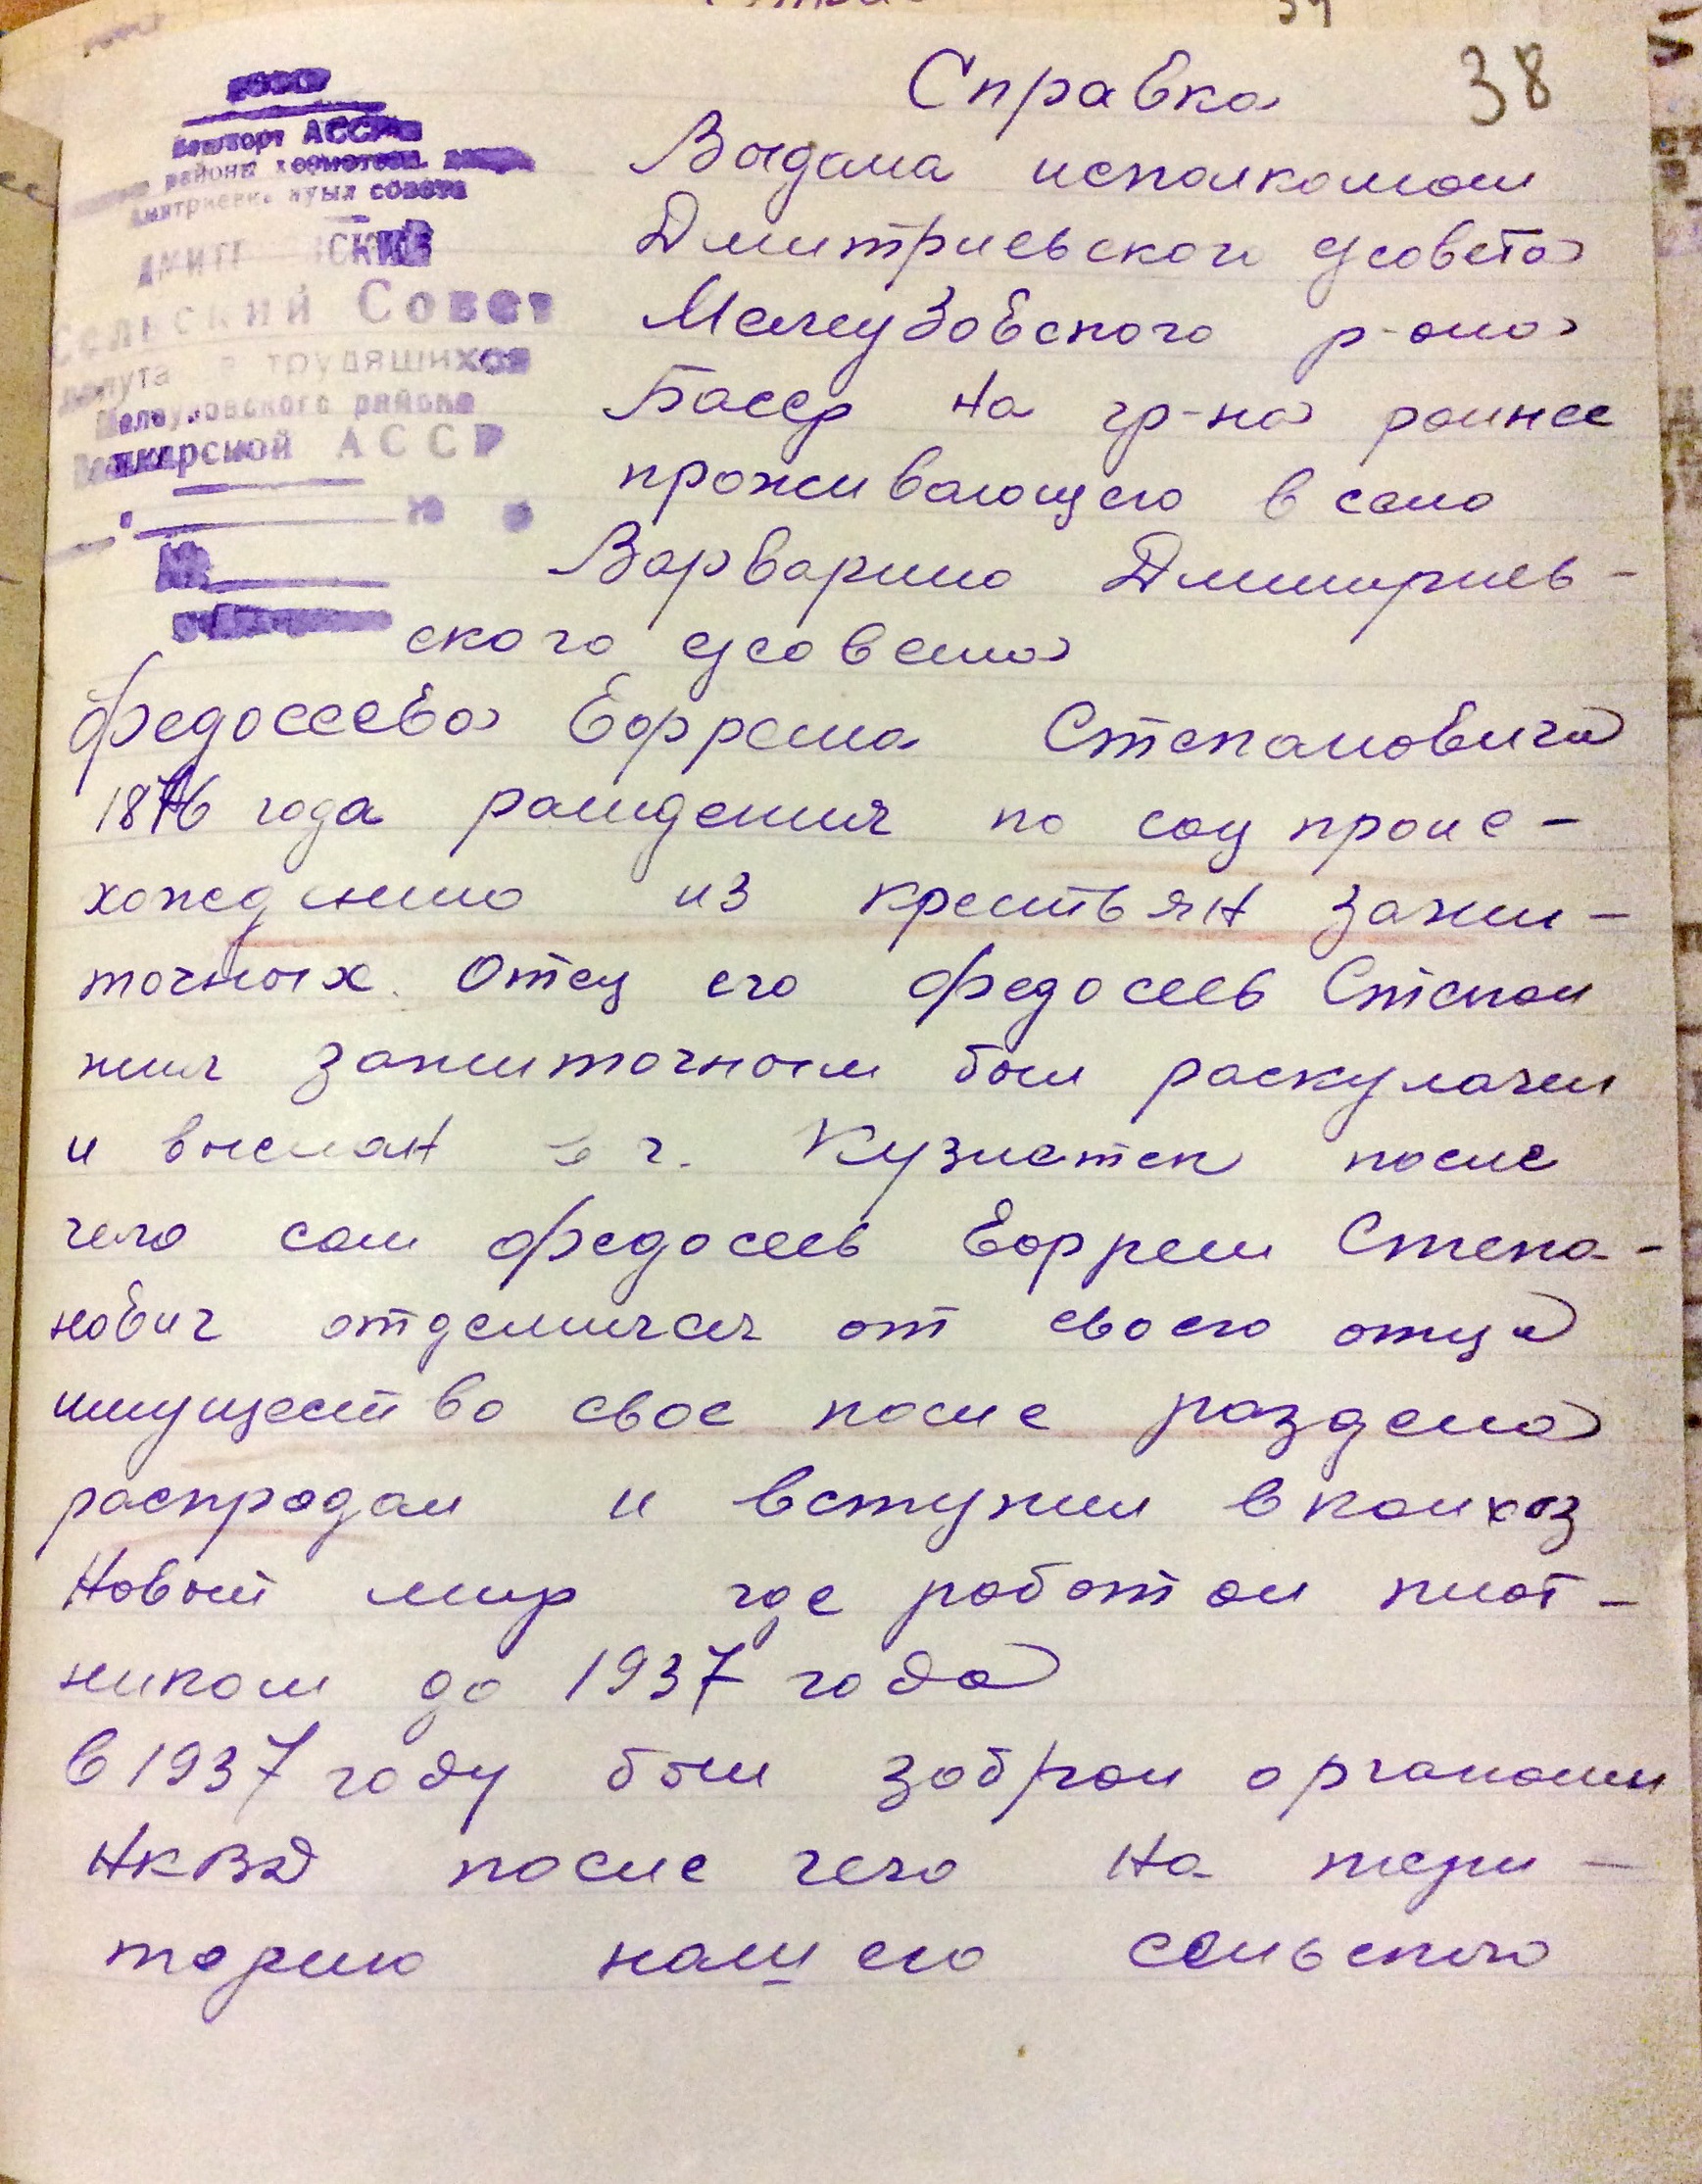 38
Справка
АССР
районы
совета
Сельский Совет
трудящихся
Мелеузовского района
Башкирской АССР
Выдана исполкомом
Дмитриевского с/совета
Мелеузовского р-она
Басср на гр-на ранее
проживающего в село
Варварино Дмитриев-
ского с/совета
Федосеева Ефрема Степановича
1876 года рождения по соц проис-
хождению из крестьян зажи-
точных. Отец его Федосеев Степан
жил зажиточным был раскулачен
и выслан в г. Кузнетск после
чего сам Федосеев Ефрем Степа-
нович отделился от своего отца
имущество свое после раздела
распродал и вступил в колхоз
Новый мир где работал плот-
ником до 1937 года
в 1937 году был забран органами
НКВД после чего на тери-
торию нашего сельского